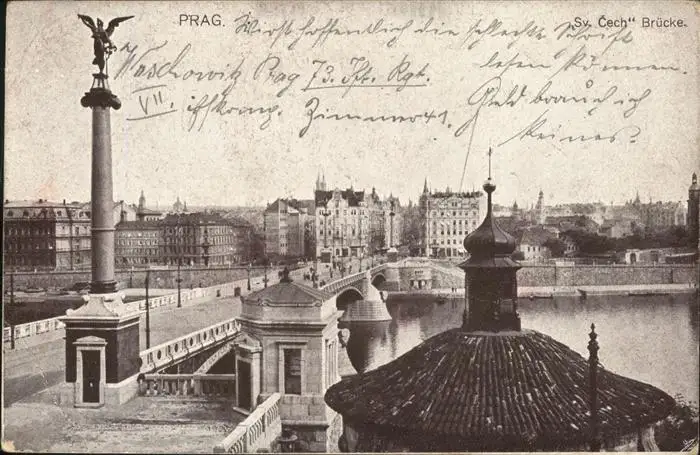 PRAG.
Sv. Čech" Brücke.
Wirst hoffentlich die schlechte Schrift
lesen können.
Geld brauch ich
keines
Waschowitz Prag 73. Iftr. Rgt.
VII.
Zimmer 41.